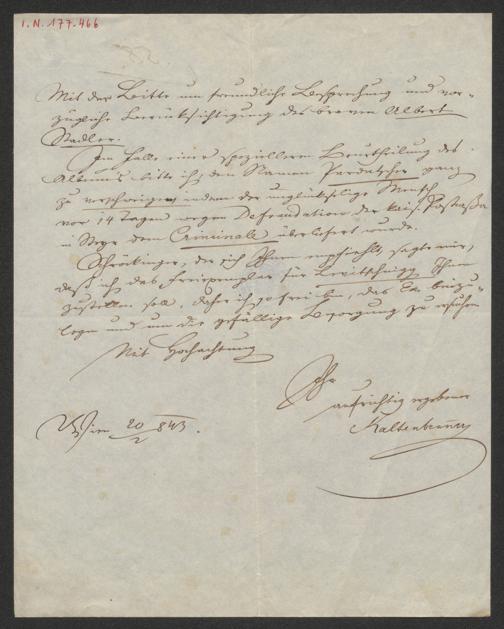 I.N. 177.466
Mit der Bitte um freundliche Besprechung und vor-
zügliche Berücksichtigung des braven Albert
Stadler.
Im Falle einer spezielleren Beurtheilung des
Albums bitte ich, den Namen ganz
zu verschweigen, indem der unglückselige Mensch
vor 14 Tagen wegen Defraudation der kais. Postcasse
in Steyr dem Criminale überliefert wurde.
der sich Ihnen empfiehlt, sagte mir,
daß ich das Freiexemplar für Levitschnigg Ihnen
zustellen soll, daher ich so frei bin, das Ex. beizu-
legen und um die gefällige Besorgung zu ersuchen
Mit Hochachtung
Ihr
aufrichtig ergebener
Kaltenbrunner
Wien 20/2 843.